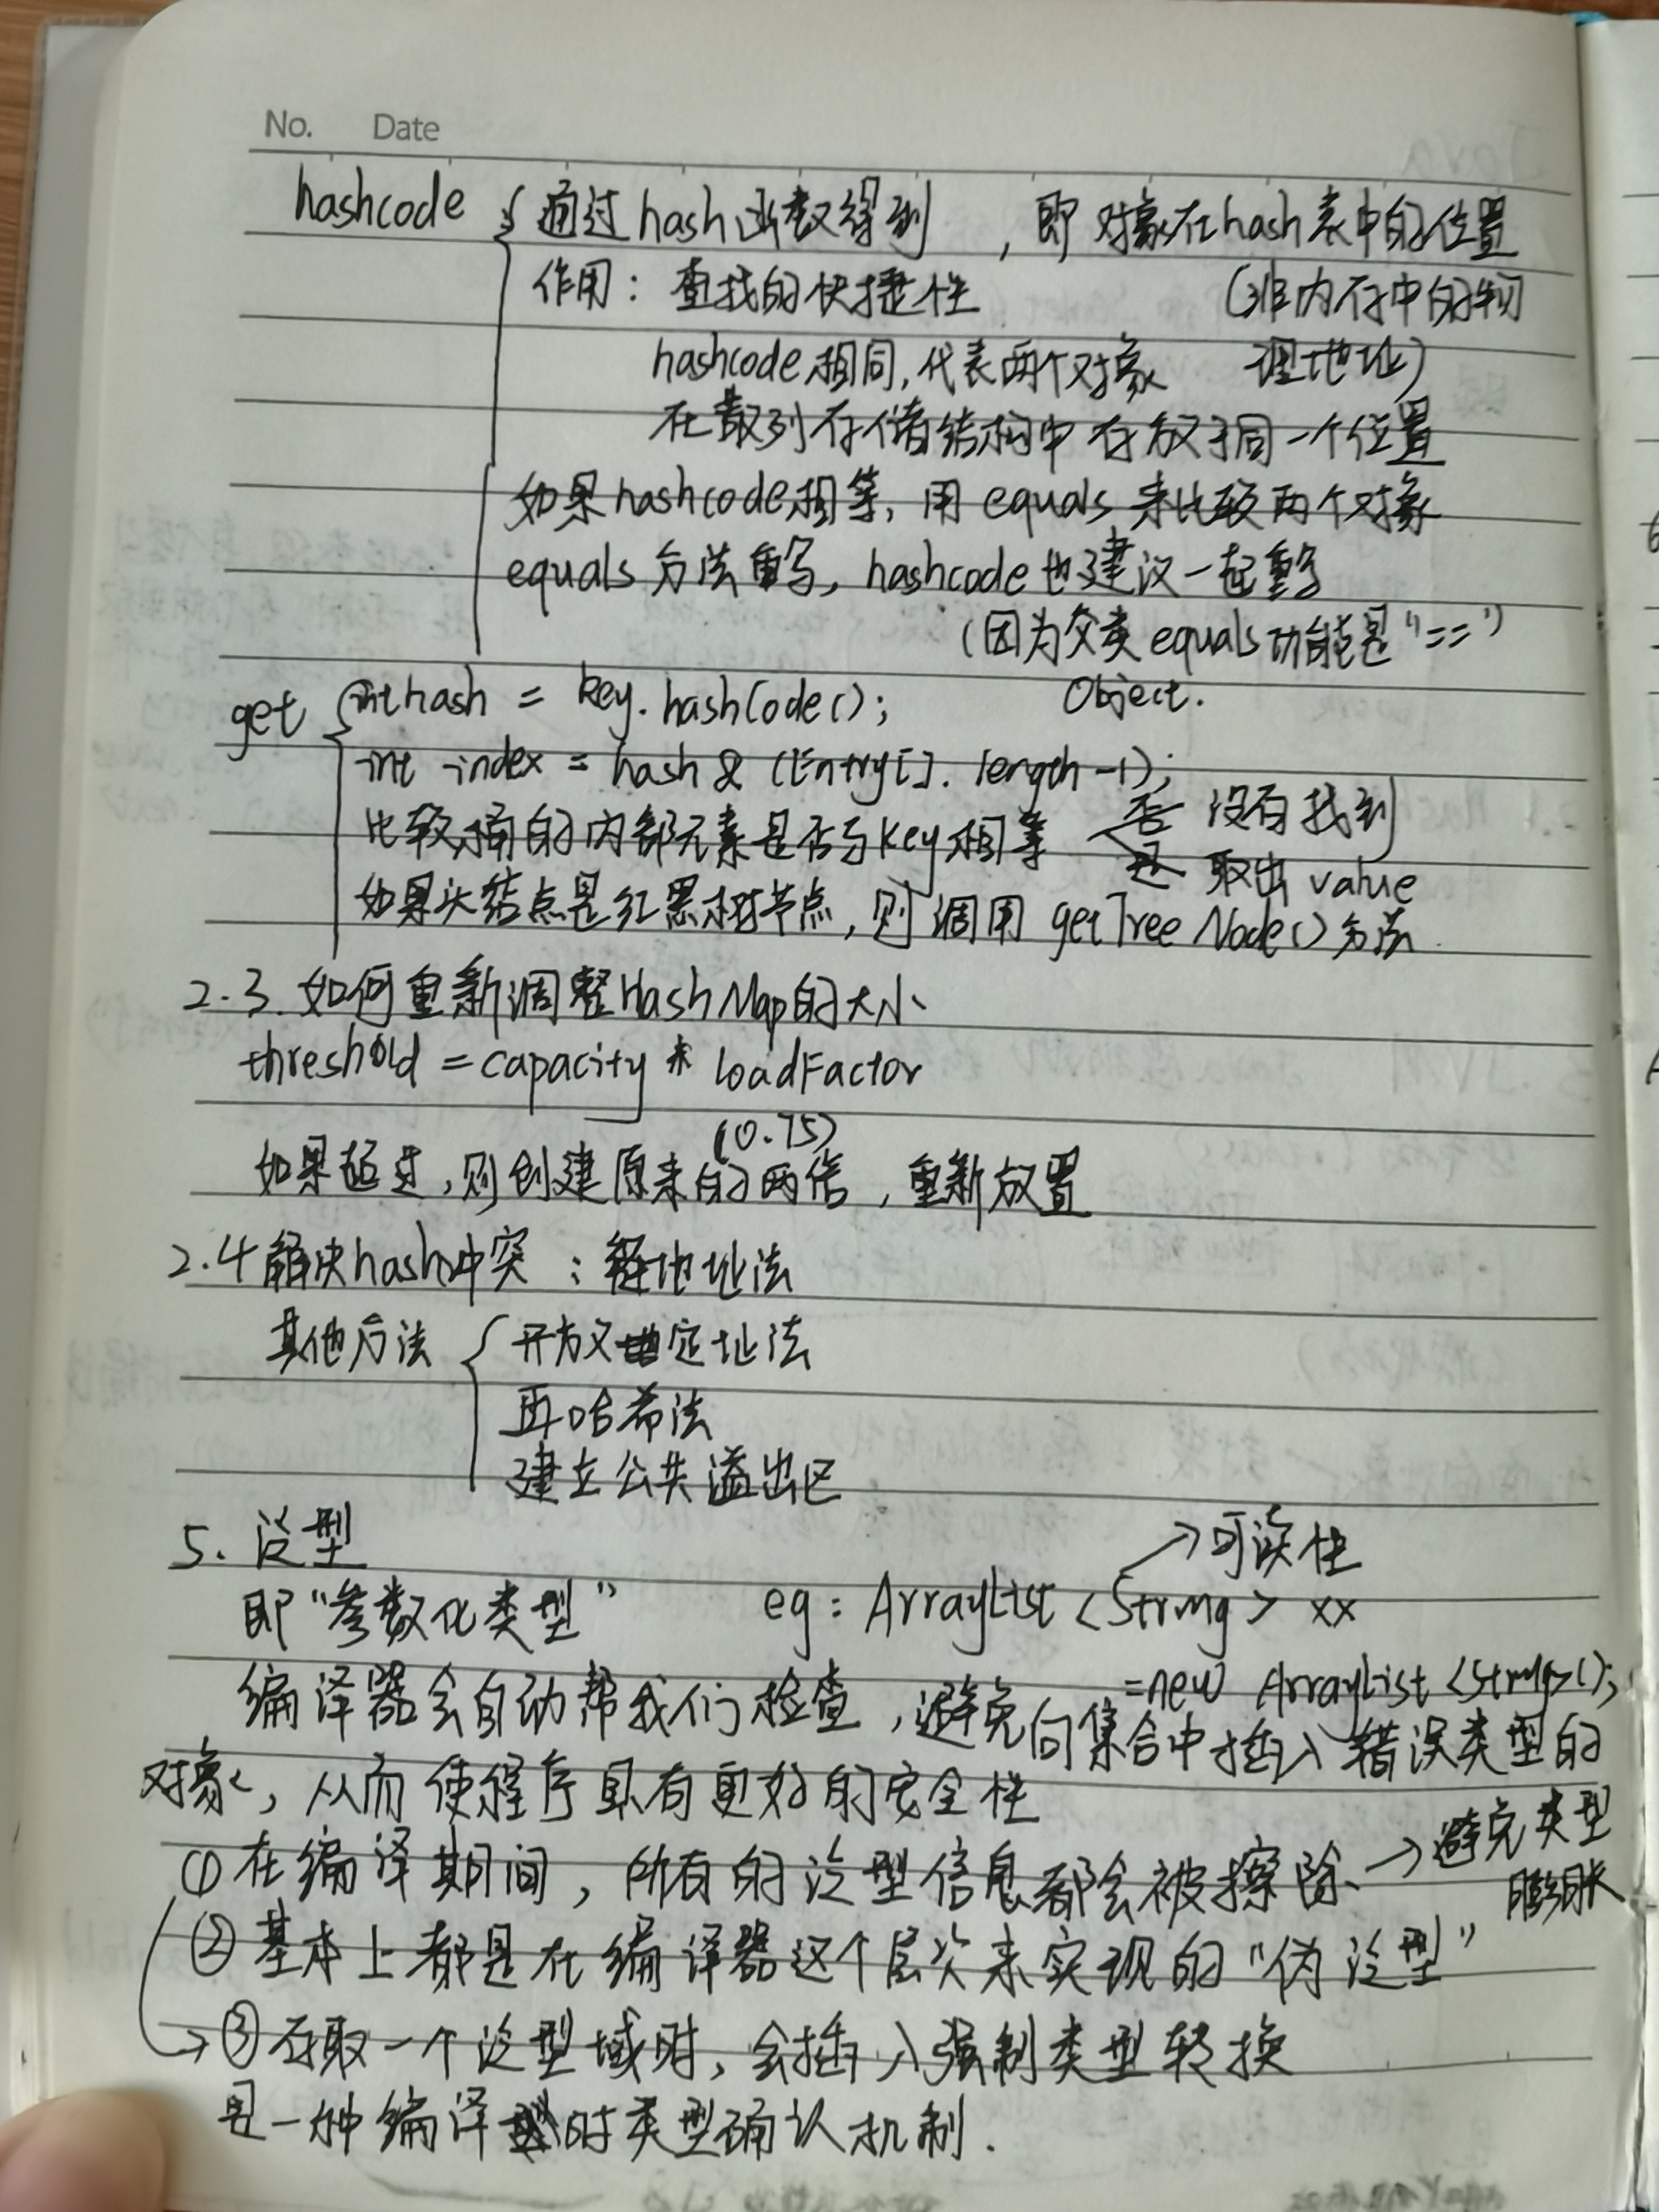 No. Date
hashcode 通过hash函数得到 , 即对象在hash表中的位置
作用: 查找的快捷性 (非内存中的物
hashcode相同,代表两个对象 理地址)
在散列存储结构中存放于同一个位置
如果hashcode相等, 用 equals 来比较两个对象
equals 方法重写, hashcode也建议一起重写
(因为父类 equals功能是"==")
Object.
get int hash = key.hashCode();
int index = hash & (Entry[].length-1);
比较桶的内部元素是否与key相等 否 没有找到
是 取出 value
如果头结点是红黑树节点, 则调用 getTreeNode()方法.
2.3. 如何重新调整HashMap的大小
threshold = capacity * loadFactor
(0.75)
如果超过,则创建原来的两倍, 重新放置
2.4 解决hash冲突 : 链地址法
其他方法 开放定址法
再哈希法
建立公共溢出区
5. 泛型 →可读性
即"参数化类型" eg: ArrayList <String> xx
=new ArrayList <String>();
编译器会自动帮我们检查, 避免向集合中插入错误类型的
对象, 从而使程序具有更好的安全性
① 在编译期间, 所有的泛型信息都会被擦除. →避免类型
膨胀
② 基本上都是在编译器这个层次来实现的"伪泛型"
→③ 存取一个泛型域时, 会插入强制类型转换
是一种编译时类型确认机制.